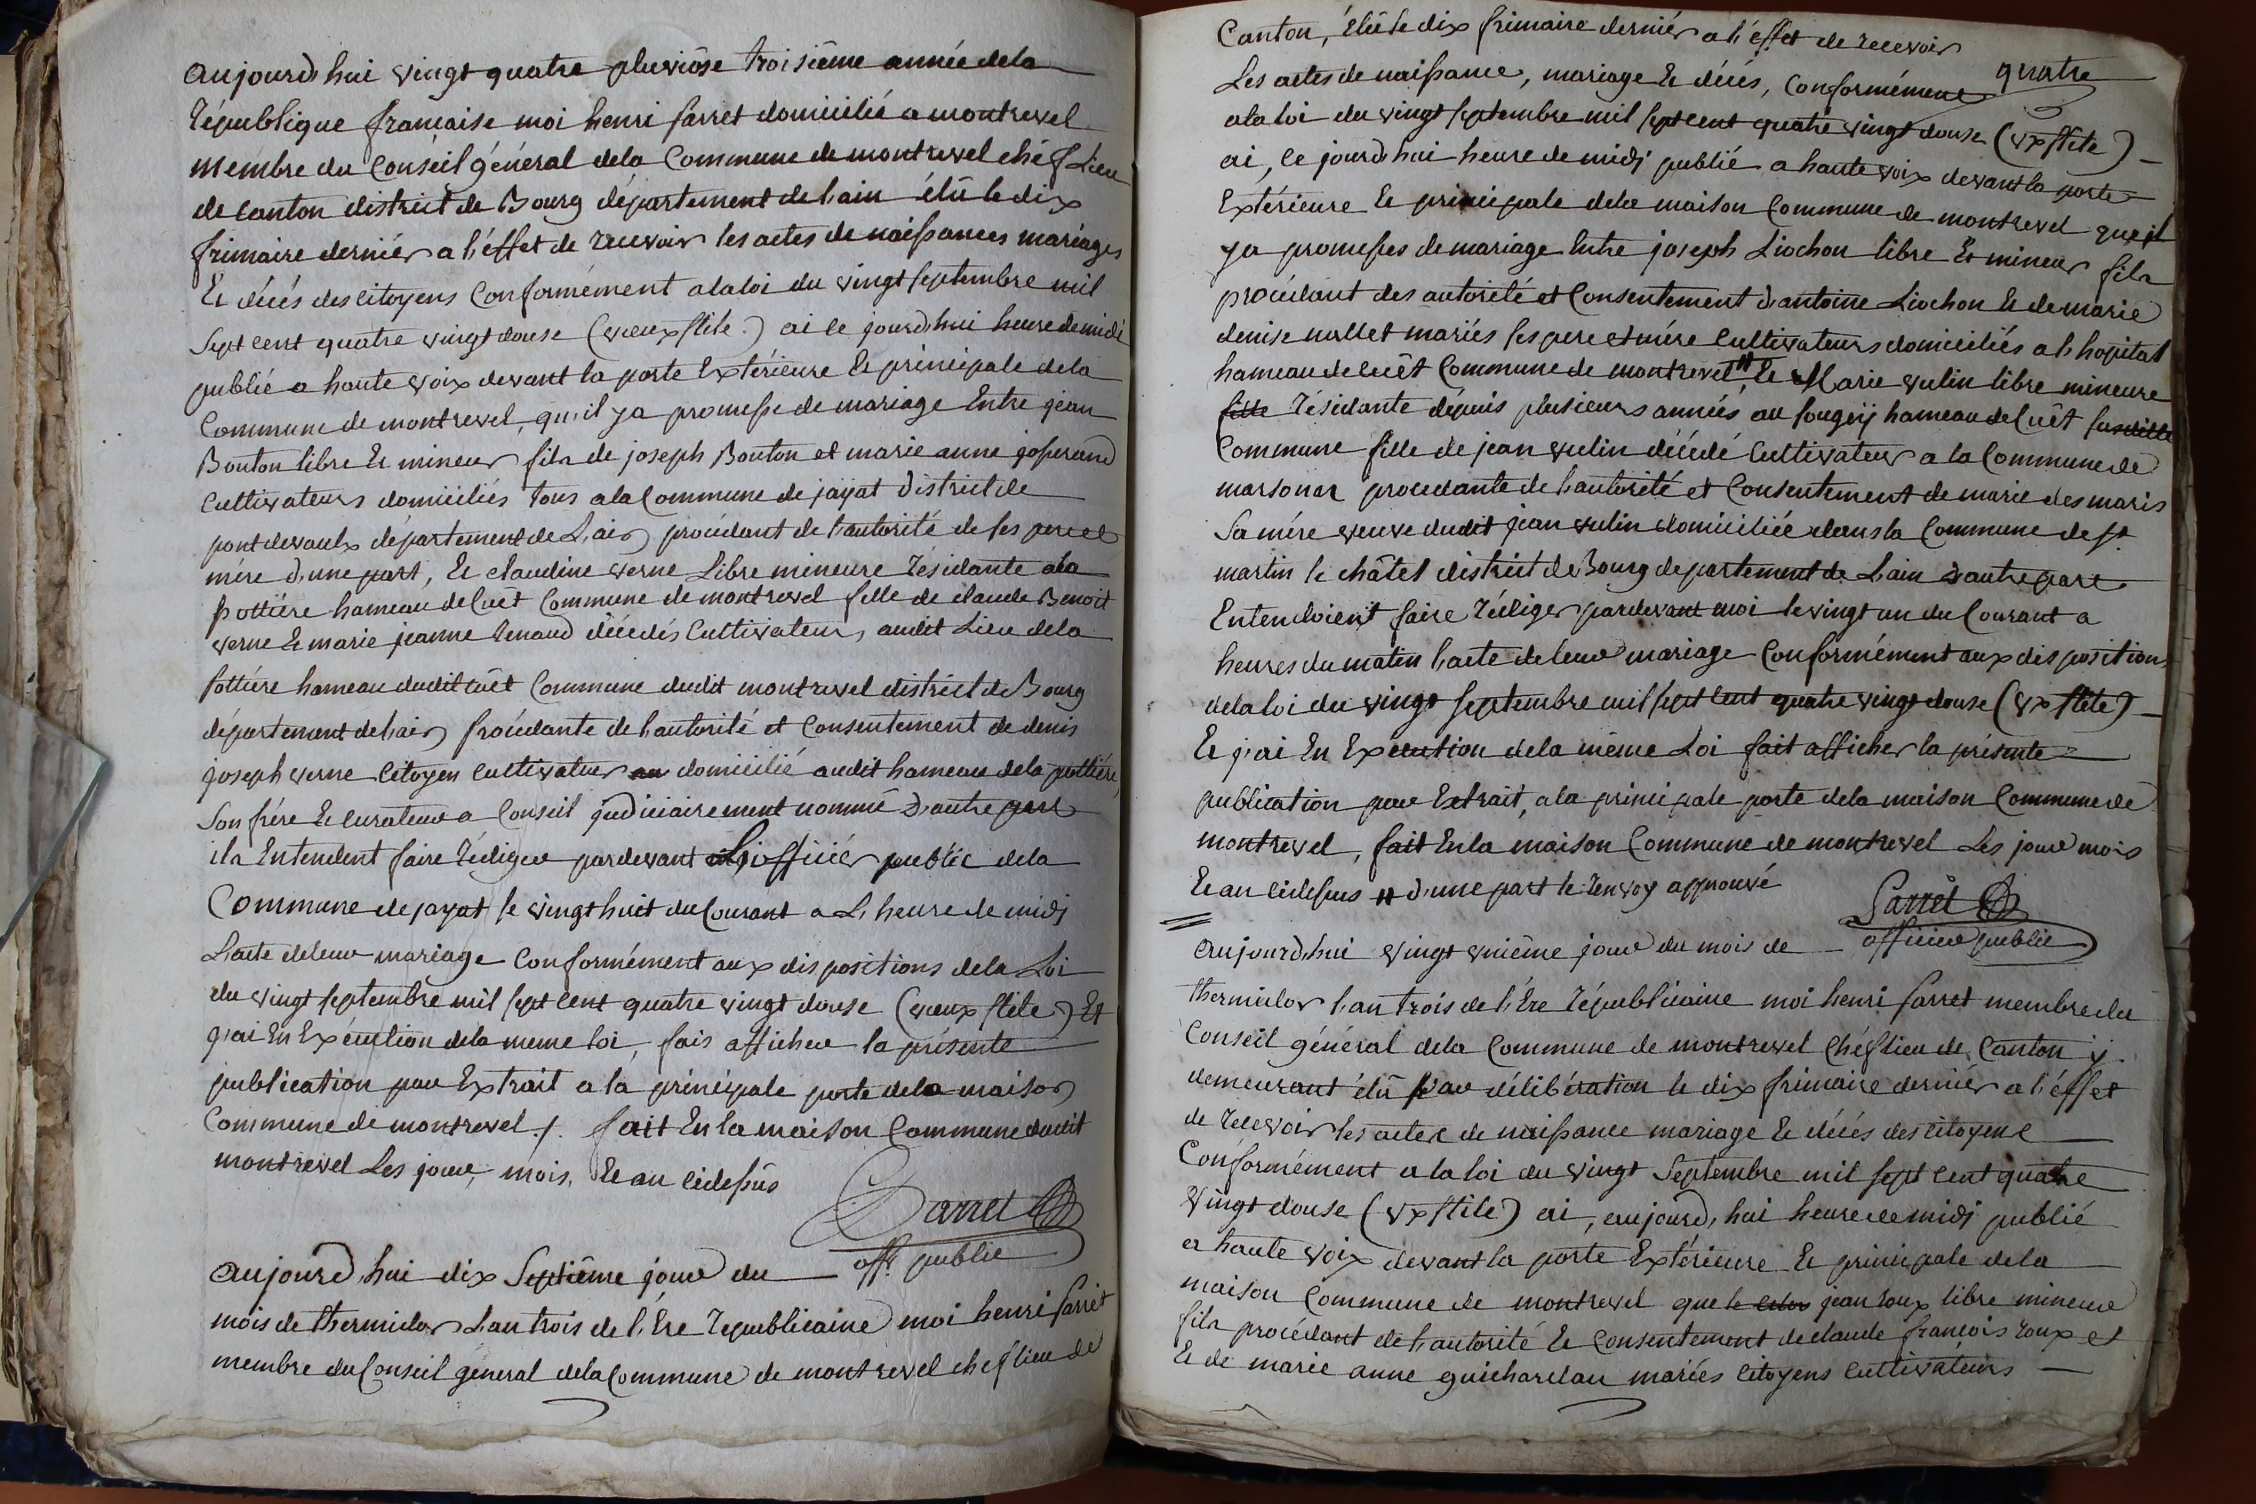 aujourd'hui vingt quatre pluviôse troisiême année dela
République française moi henri farret domicilié a montrevel
membre du Conseil général dela Commune de montrevel chéf Lieu
de canton district de Bourg département de l'ain élû le dix
frimaire derniér a l'éffet de recevoir les actes de naissances mariages
Et décés des citoyens Conformément a la loi du vingt septembre mil
sept cent quatre vingt douse (vieux stile.) ai ce jourd'hui heure de midi
publié a haute voix devant la porte Extérieure Et principale dela
Commune de montrevel, qu'il ya promesse de mariage Entre jean
Bouton libre Et mineur fils de joseph Bouton et marie anne josserand
cultivateurs domiciliés tous a la Commune de jayat district de
pontdevaulx département de L'ain procédant de l'autorité de ses pere et
mére d'une part, Et claudine verne Libre mineure résidante a la
pottiére hameau de Cuêt Commune de montrevel fille de claude Benoit
verne Et marie jeanne renaud décédés Cultivateurs audit Lieu dela
pottiére hameau dudit Cuêt Commune dudit montrevel district de Bourg
département de l'ain procédante de l'autorité et Consentement de denis
joseph verne Citoyen cultivateur domicilié audit hameau dela pottiére,
Son frére Et curateur a Conseil judiciairement nommé d'autre part
ils Entendent faire rédiger pardevant L'officiér public dela
Commune de jayat le vingt huit du Courant a L'heure de midi
L'acte de leur mariage Conformément aux dispositions dela Loi
du vingt septembre mil sept cent quatre vingt douse (vieux stile) Et
j'ai En Exécution dela meme loi, fais afficher la présente
publication par Extrait a la principale porte dela maison
Commune de montrevel ./. fait En la maison Commune dudit
montrevel Les jour, mois, Et an cidessus
farret
off. public
aujourd'hui dix Septiême jour du
mois de thermidor L'an trois de l'Ere republicaine moi henri farret
membre du Conseil general dela Commune de montrevel cheflieu de
Canton, élû le dix frimaire derniér a l'éffet de recevoir
quatre
Les actes de naissance, mariage Et décés, Conformément
a la loi du vingt septembre mil sept cent quatre vingt douse (vx stile)
ai, ce jourd'hui heure de midi publié a haute voix devant la porte
Extérieure Et principale dela maison Commune de montrevel qu'il
ya promesses de mariage Entre joseph Liochon libre Et mineur fils
procédant des autorité et Consentement d'antoine Liochon Et de marie
denise nallet mariés ses pere et mére Cultivateurs domiciliés a l'hopital
hameau de Cuêt Commune de montrevel #, Et Marie vulin libre mineure
fille résidante dépuis plusieurs années au fougey hameau de Cuêt susditte
Commune fille de jean vulin décédé Cultivateur a la Commune de
marsonas procedante de l'autorité et Consentement de marie desmaris
Sa mére veuve dudit jean vulin domiciliée dans la Commune de St
martin le châtel district de Bourg departement de L'ain d'autre part
Entendoient faire rédiger pardevant moi le vingt un du Courant a
heures du matin l'acte de leur mariage Conformément aux dispositions
dela loi du vingt septembre mil sept cent quatre vingt douse (vx stile)
Et j'ai En Execution dela même Loi fait afficher la présente
publication par Extrait, a la principale porte dela maison Commune de
montrevel, fait En la maison Commune de montrevel Les jour mois
Et an cidessus # d'une part le renvoy approuvé
farret
officier public
aujourd'hui vingt uniême jour du mois de
thermidor l'an trois de l'Ere républicaine moi henri farret membre du
Conseil général dela Commune de montrevel Chéflieu de Canton y
demeurant élû par délibération le dix frimaire derniér a l'éffet
de recevoir les actes de naissance mariage Et décés des citoyens
Conformément a la loi du vingt Septembre mil sept cent quatre
Vingt douse (vx stile) ai, aujourd'hui heure de midi publié
a haute voix devant la porte Extérieure Et principale dela
maison Commune de montrevel que jean roux libre mineur
fils procédant de l'autorité Et Consentement de claude françois roux et
Et de marie anne guichardan mariés Citoyens Cultivateurs